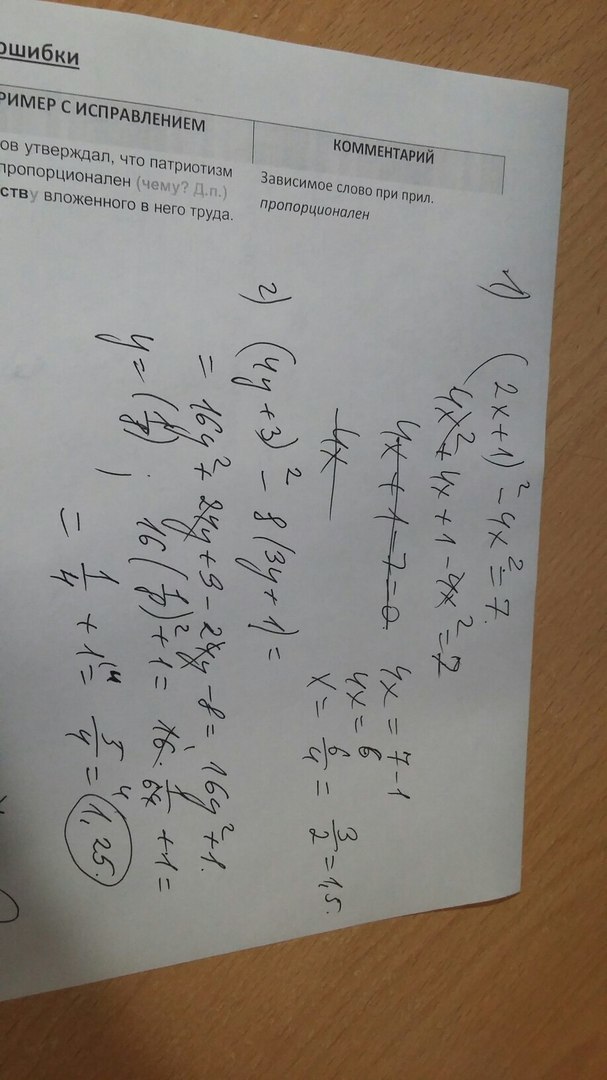 ошибки
РИМЕР С ИСПРАВЛЕНИЕМ
КОММЕНТАРИЙ
ов утверждал, что патриотизм
пропорционален (чему? Д.п.)
ству вложенного в него труда.
Зависимое слово при прил.
пропорционален
1) (2x+1)² - 4x² = 7.
4x² + 4x + 1 - 4x² = 7
4x + 1 - 7 = 0
4x
4x = 7 - 1
4x = 6
x = 6/4 = 3/2 = 1,5.
2) (4y+3)² - 8(3y+1) =
= 16y² + 24y + 9 - 24y - 8 = 16y² + 1.
y = (1/8) ; 16(1/8)² + 1 = 16 · 1/64 + 1 =
= 1/4 + 1 = 5/4 = 1,25.